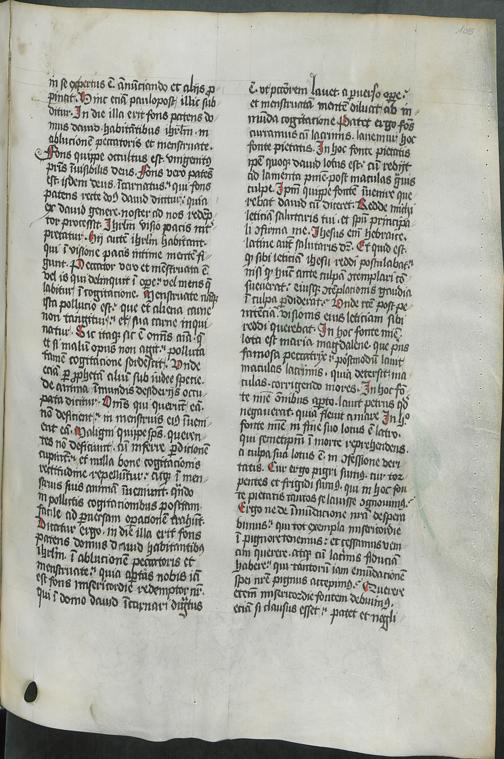 in se expertus ē. anūciando et alijs p
pinat. Hinc etiā paulopost illic sub
ditur. In die illa erit fons patens do
mus dauid. habitātibus ihrlm. in
ablucionē peccatoris et menstruate.
Fons quippe occultus est. vnigenitꝰ
pris īuisibilis deus. Fons vero patēs
est isdem deus. īcarnatus. qui fons
patens recte domꝰ dauid dicitur. quia
ex dauid genere. noster ad nos redēp
tor processit. Ihrlm visio pacis int
pretatur. Hij autē ihrlm habitant.
qui ī visione pacis intime mentē fi
gunt. Peccator vero et mēstruata ē
vel is qui delinquit ī ope. vel mens q̄
labitur ī cogitatione. Menstruate
ista pollutio est. que et aliena carne
non tangitur. et sua carne inqui
natur. Sic itaqꝫ sic ē omīs aīa. q̄
et si malū opus non agit. polluta
tamē cogitatione sordescit. Vnde
etiā p prophetā cuius sub iudee specie.
de anima. īmundis desiderijs occu
pata dicitur. Om̄s qui querūt eā.
nō deficient. in menstruis eiꝰ īueni
ent eā. Maligni quippe spūs. queren
tes nō deficiūt. cū inferre pditionē
cupiūt. et nulla bone cogitationis
rectitudine repellūtur. eāqꝫ ī men
struis suis animā īueniunt. qn̄do
in pollutis cogitationibus positam.
facile ad puersam opationē trahūt.
Dicatur ergo. in die illa erit fons
patens domus dauid habitantibꝰ
ihrlm ī ablucionē peccatoris et
menstruate. quia aptus nobis iā
est fons misericordie redemptor nr̄.
qui ī domo dauid īcarnari dignatus
ē. vt pctōrem lauet. a puerso ope.
et menstruatā mentē diluat ab im
mūda cogitatione. Patet ergo fōs
curramus cū lacrimis. lauemur hoc
fonte pietatis. In hoc fonte pietatis
ipse quoqꝫ dauid lotus est. cū redijt
ad lamenta pnie. post maculas guis
culpe. Ipm quippe fontē īuenire que
rebat dauid cū diceret. Redde michi
leticiā salutaris tui. et spū principa
li ɔfirma me. Ihesus em̄ hebraice.
latine aūt salutaris dr̄. Et quid est.
qꝙ sibi leticiā ihesu reddi postulabat.
nisi qꝙ hunc ante culpā ɔtemplari cō
sueuerat. eiusqꝫ ɔtēplationis gaudia
ī culpa pdiderat. Vnde recte post pe
nitēciā. visionis eius leticiam sibi
reddi querebat. In hoc fonte mīe.
lota est maria magdalene. que prius
famosa peccatrix. postmodū lauit
maculas lacrimis. quia detersit ma
culas. corrigendo mores. In hoc fō
te mīe omnibus apto. lauit petrus qꝙ
negauerat. quia fleuit amare. In hoc
fonte mīe in fine suo lotus ē latro.
qui semetipm ī morte reprehendens.
a culpa sua lotus ē in ɔfessione veri
tatis. Cur ergo pigri sumꝰ. cur tor
pentes et frigidi sumꝰ. qui in hoc fon
te pietatis tantos se lauisse cognouimꝰ.
Ergo ne de īmūdicione nrā despera
bimus. qui tot exempla misericordie
ī pignore tenemus. et cessamus veni
am querere. atqꝫ cū lacrimis fiduciam
habere. qui tantorum iam emūdacionē
spei nrē pignus accepimꝰ. Querere
etem̄ misericordie fontem debuimꝰ.
etiā si clausus esset. patet et negli